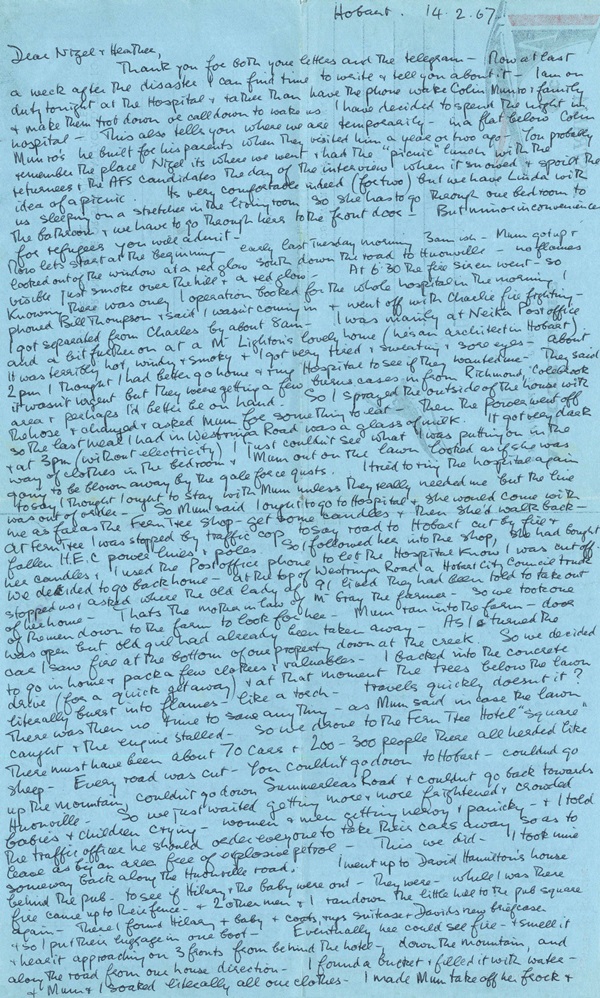 Hobart. 14.2.67.
Dear Nigel & Heather,
Thank you for both your letters and the telegram - Now at last
a week after the disaster I can find time to write & tell you about it - I am on
duty tonight at the Hospital & rather than have the phone wake Colin Munro & family
& make them trot down or call down to wake us I have decided to spend the night in
hospital - This also tells you where we are temporarily - in a flat below Colin
Munro's he built for his parents when they visited him a year or two ago - You probably
remember the place Nigel its where we went & had the "picnic" lunch with the
returnees & the AFS candidates the day of the interview when it snowed & spoilt the
idea of a picnic. Its very comfortable indeed (for two) but we have Linda with
us sleeping on a stretcher in the living room so she has to go through one bedroom to
the bathroom & we have to go through hers to the front door! But minor inconvenience
for refugees you will admit -
Now lets start at the beginning - early last Tuesday morning 3am ish - Mum got up &
looked out of the window at a red glow south down the road to Huonville - no flames
visible just smoke over the hill & a red glow - At 6.30 the fire siren went - so
Knowing there was only 1 operation booked for the whole hospital in the morning I
phoned Bill Thompson & said I wasn't coming in & went off with Charlie fire fighting -
I got separated from Charles by about 8am - I was mainly at Neika Post office
and a bit further on at a Mr Lighton's lovely home (he's an architect in Hobart)
It was terribly hot, windy & smoky & I got very tired & sweating & sore eyes - about
2pm I thought I had better go home & ring Hospital to see if they wanted me - They said
it wasn't urgent but they were getting a few burns cases in from Richmond, Colebrook
area & perhaps I'd better be on hand - So I sprayed the outside of the house with
the hose & changed & asked Mum for something to eat - Then the power went off
so the last meal I had in Westringa Road was a glass of milk. It got very dark
& at 3pm (without electricity) I just couldn't see what I was putting on in the
way of clothes in the bedroom & Mum out on the lawn looked as if she was
going to be blown away by the gale force gusts. I tried to ring the hospital again
to say I thought I ought to stay with Mum unless they really needed me but the line
was out of order - So Mum said I ought to go to Hospital & she would come with
me as far as the Fern Tree shop - get some candles & then she'd walk back -
At Fern Tree I was stopped by traffic cop, to say road to Hobart cut by fire &
fallen H.E.C power lines & poles - So I followed her into the shop, she had bought
her candles & I used the Post office phone to let the Hospital Know I was cut off
We decided to go back home - at the top of Westringa Road a Hobart City Council truck
stopped us & asked where the old lady of 91 lived they had been told to take out
of her home - Thats the mother in law of Mr Gray the farmer - so we took one
of the men down to the farm to look for her - Mum ran into the farm - door
was open but old girl had already been taken away - As I turned the
car I saw fire at the bottom of our property down at the creek. So we decided
to go in home & pack a few clothes & valuables - I backed into the concrete
drive (for a quick getaway) & at that moment the trees below the lawn
literally burst into flames - like a torch - travels quickly doesn't it?
There was then no time to save anything - as Mum said in case the lawn
caught & the engine stalled - So we drove to the Fern Tree Hotel "square"
There must have been about 70 cars & 200 - 300 people there all herded like
sheep - Every road was cut - You couldn't go down to Hobart - couldn't go
up the mountain, couldn't go down Summerleas Road & couldn't go back towards
Huonville - So we just waited getting more & more frightened & crowded
babies & children crying - women & men getting nervy & panicky - & I told
the traffic officer he should order everyone to take their cars away so as to
leave us by an area free of explosive petrol - This we did - I took mine
someway back along the Huonville road. I went up to David Hamilton's house
behind the pub - to see if Hilary & the baby were out - They were - while I was there
fire came up to their fence - & 2 other men & I ran down the little hill to the pub square
again - There I found Hilary & baby & coats, rugs suitcase & Davids new briefcase
& so I put their luggage in one boot - Eventually we could see fire - & smell it
& hear it approaching on 3 fronts from behind the hotel, down the mountain, and
along the road from our house direction - I found a bucket & filled it with water -
& Mum & I soaked literally all our clothes - I made Mum take off her frock &